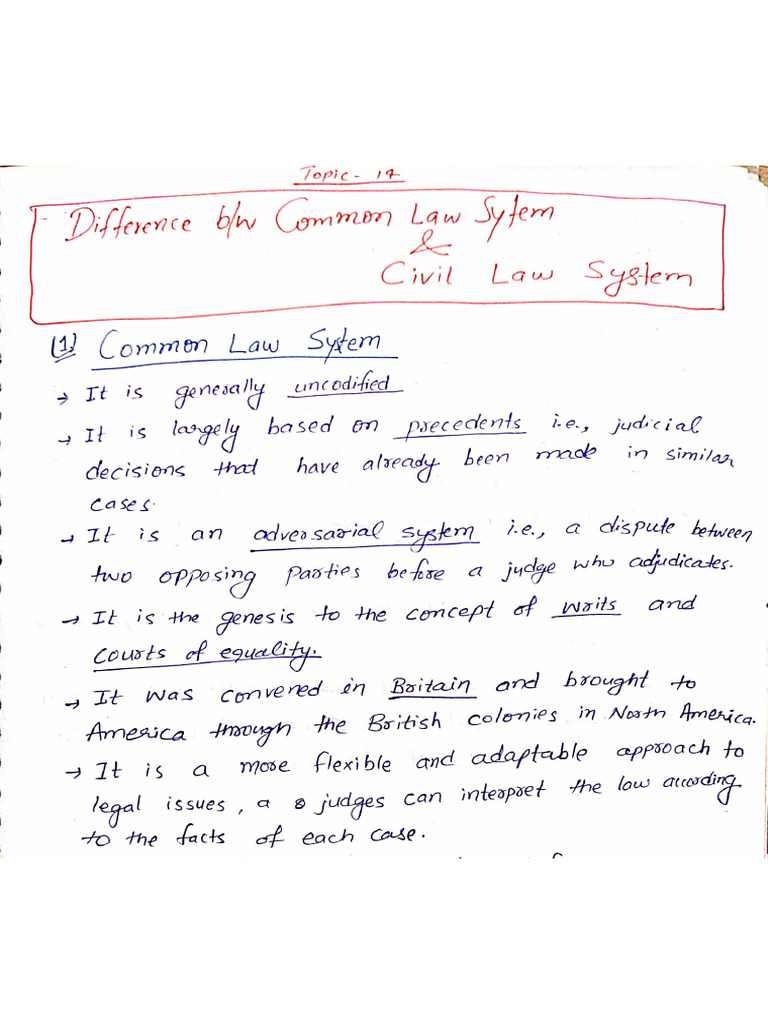 Topic - 17
Difference b/w Common Law Sytem
&
Civil Law System
(1) Common Law Sytem
→ It is generally uncodified
→ It is largely based on precedents i.e., judicial
decisions that have already been made in similar
cases.
→ It is an adversarial system i.e., a dispute between
two opposing parties before a judge who adjudicates.
→ It is the genesis to the concept of writs and
courts of equality.
→ It was convered in Britain and brought to
America through the British colonies in North America.
→ It is a more flexible and adaptable approach to
legal issues, a judges can interpret the law according
to the facts of each case.